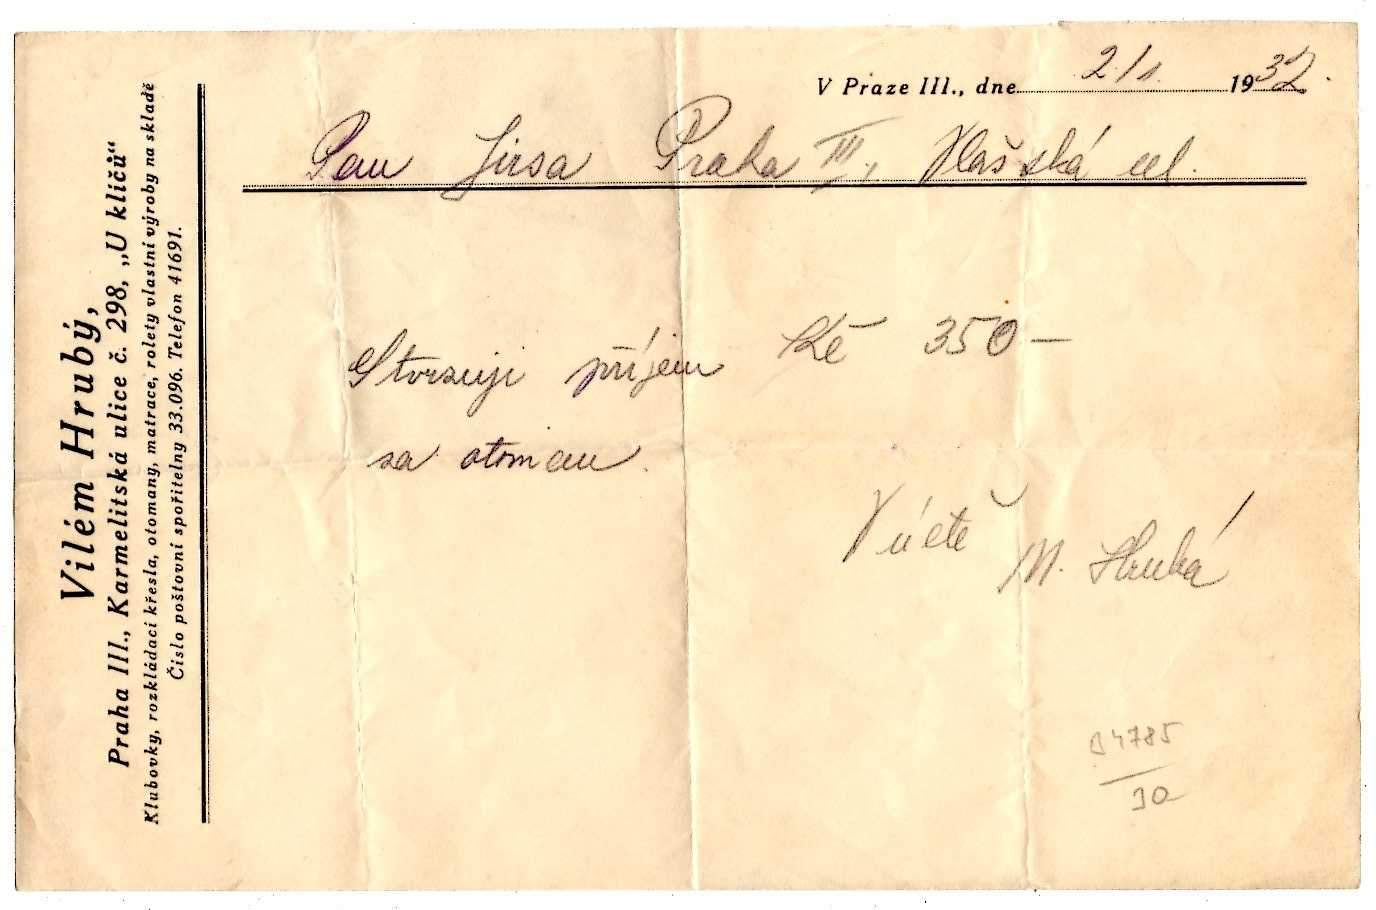 Vilém Hrubý,
Praha III., Karmelitská ulice č. 298, „U klíčů“
Klubovky, rozkládací křesla, otomany, matrace, rolety vlastní výroby na skladě
Číslo poštovní spořitelny 33.096. Telefon 41691.
V Praze III., dne 2/1. 1932.
Pan Jirsa Praha III., Vlašská ul.
Stvrzuji příjem Kč 350—
za otoman.
V úctě
M. Hrubá
4785